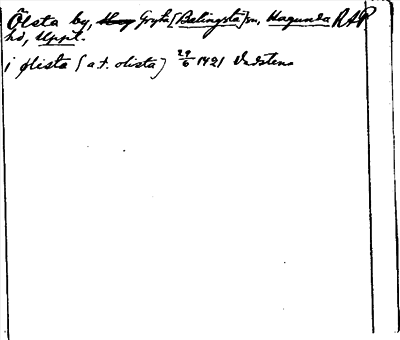 Ölsta by, Gryta [Balingsta] sn, Hagunda RAP
hd, Uppl.
i ølista [a t. olista] 29/6 1421 Vadstena